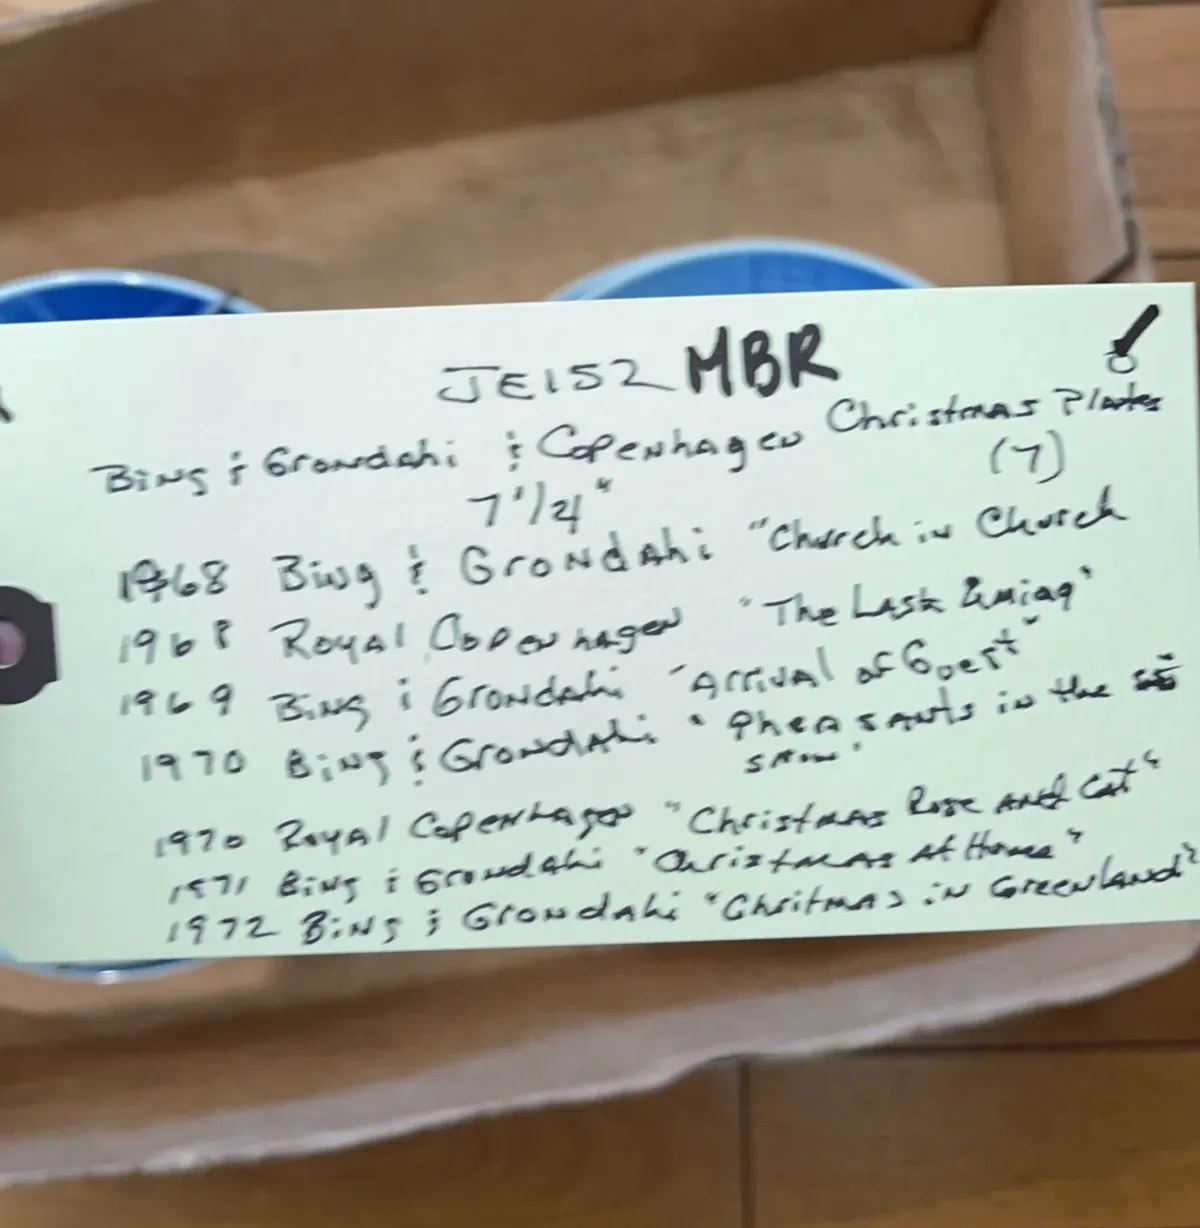 JE152 MBR
Bing & Grondahi & Copenhagen Christmas Plates
7 1/4" (7)
1968 Bing & Grondahi "Church in Church
1968 Royal Copenhagen "The Last Umiag"
1969 Bing & Grondahi "Arrival of Goest"
1970 Bing & Grondahi "Pheasants in the
snow"
1970 Royal Copenhagen "Christmas Rose and Cat"
1971 Bing & Grondahi "Christmas At Home"
1972 Bing & Grondahi "Chritmas in Greenland"